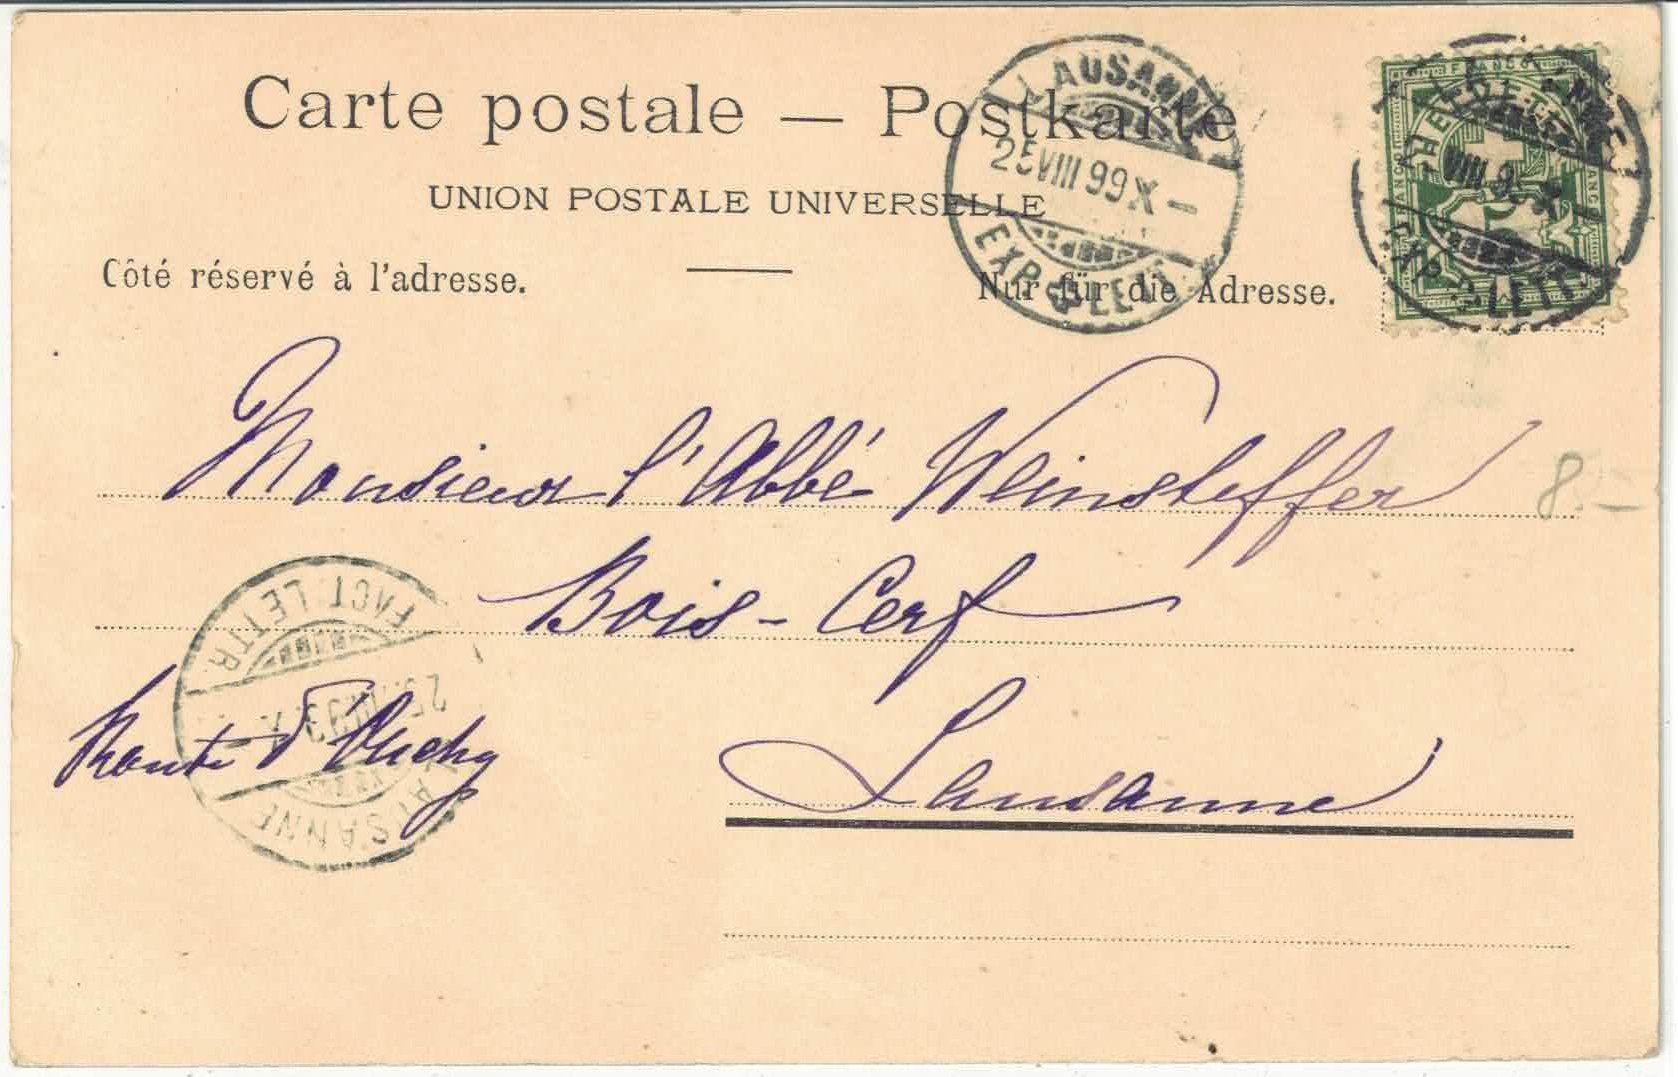 Carte postale — Postkarte
UNION POSTALE UNIVERSELLE
Côté réservé à l'adresse.
Nur für die Adresse.
LAUSANNE
25 VIII 99 X –
EXP. LETT.
FRANCO
VIII 99 X
EXP. LETT.
Monsieur l'Abbé Weinsteffer
8.–
Bois-Cerf
Route d'Ouchy
Lausanne
LAUSANNE
LETTR.